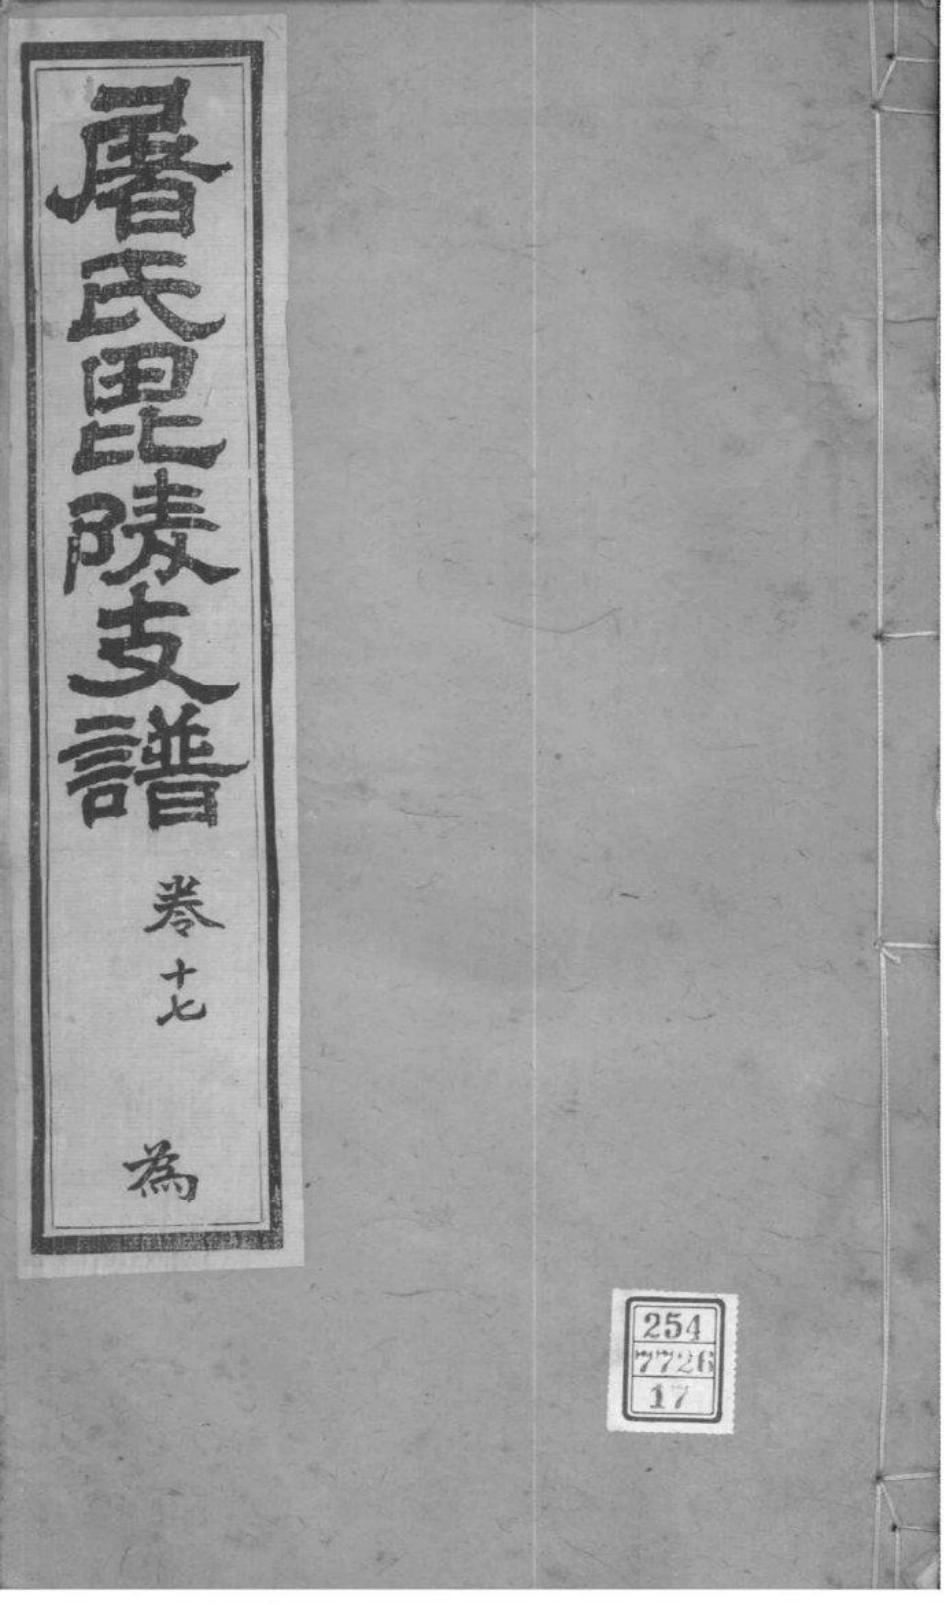 屠氏毘陵支譜
卷十七
為
254
7726
17